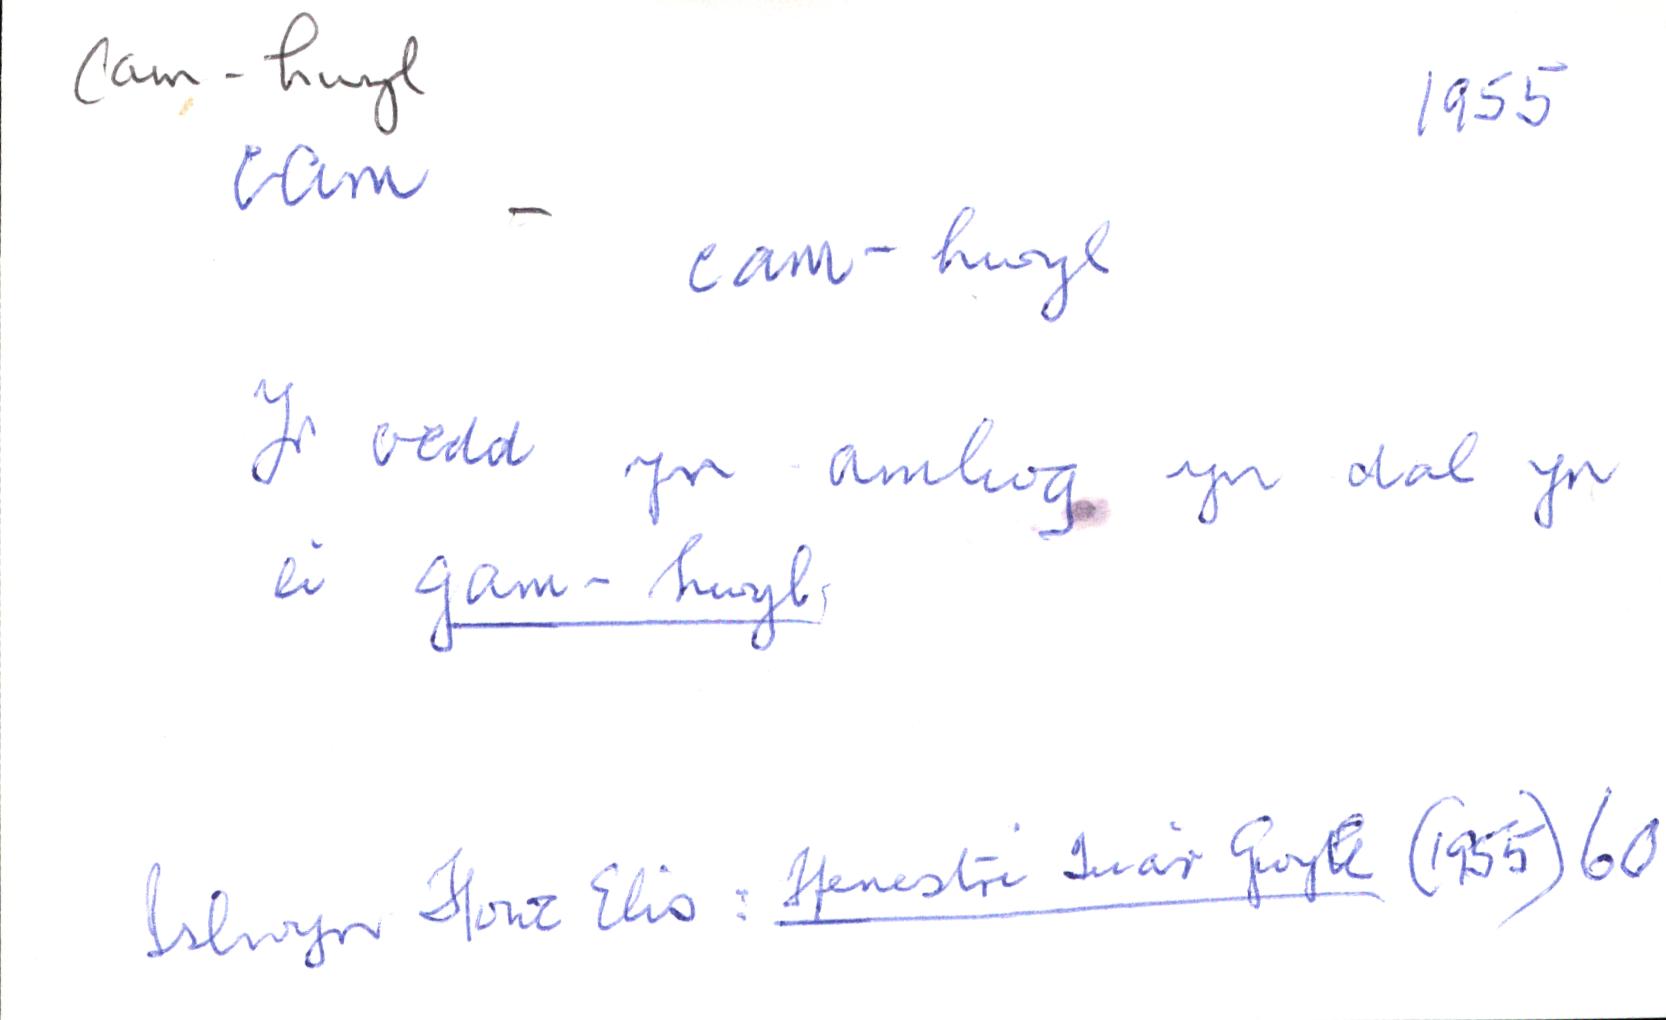 cam-hwyl
1955
cam -
cam-hwyl
Yr oedd yn amlwg yn dal yn
ei gam-hwyl,
Islwyn Ffowc Elis: Ffenestri Tua'r Gwyll (1955) 60